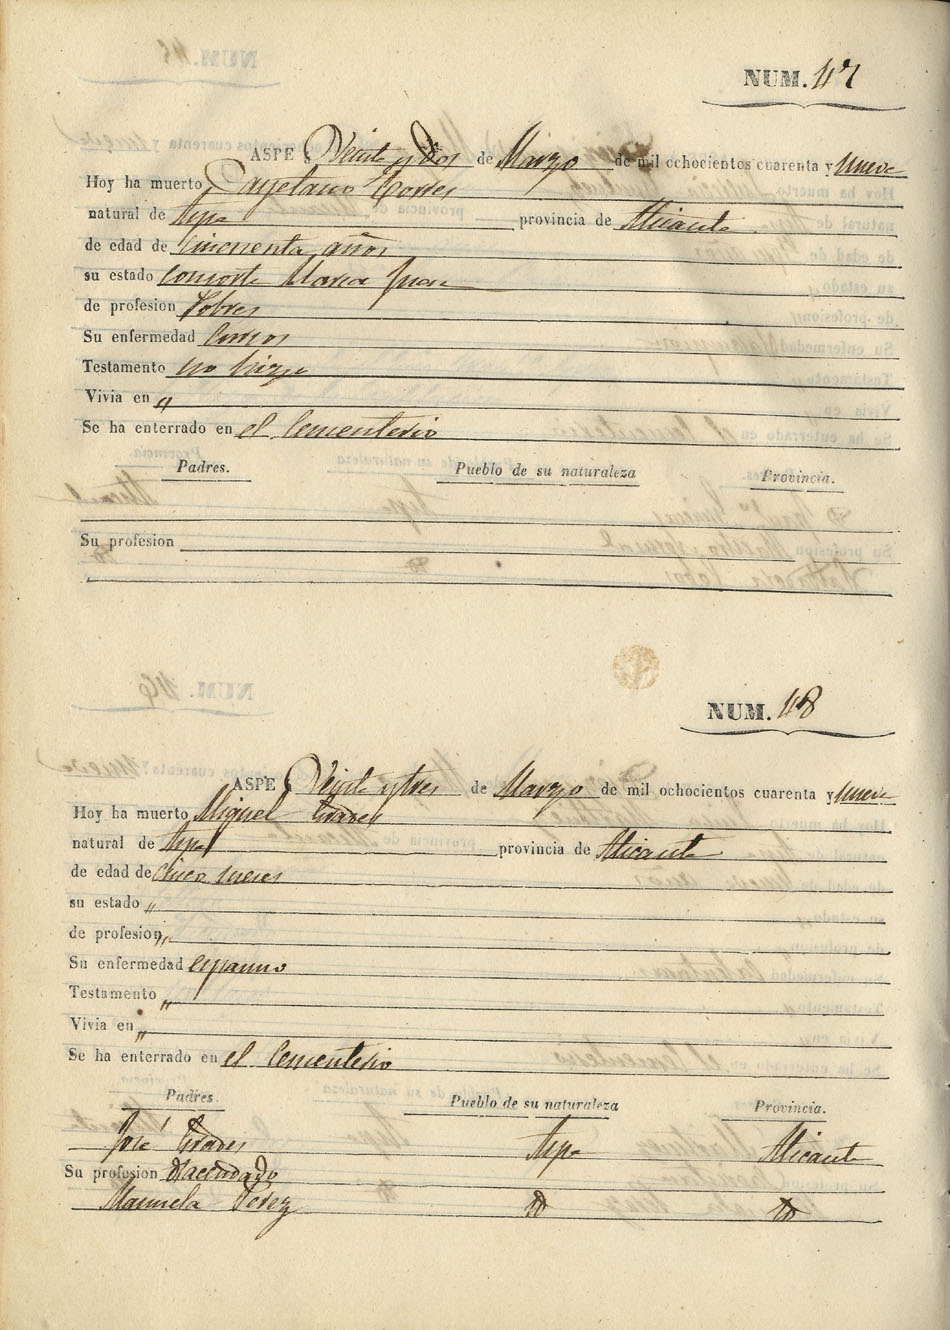 NUM. 47
ASPE Veinte y dos de Marzo de mil ochocientos cuarenta y nueve
Hoy ha muerto Cayetano Torres
natural de Aspe provincia de Alicante
de edad de cincuenta años
su estado consorte Maria Juan
de profesion Pobres
Su enfermedad Cursos
Testamento no hizo
Vivia en "
Se ha enterrado en el Cementerio
Padres. Pueblo de su naturaleza Provincia.
Su profesion
NUM. 48
ASPE Veinte y tres de Marzo de mil ochocientos cuarenta y nueve
Hoy ha muerto Miguel
natural de Aspe provincia de Alicante
de edad de Cinco meses
su estado "
de profesion "
Su enfermedad espasmo
Testamento "
Vivia en "
Se ha enterrado en el Cementerio
Padres Pueblo de su naturaleza Provincia.
José Aspe Alicante
Su profesion Hacendado
Manuela Perez id id